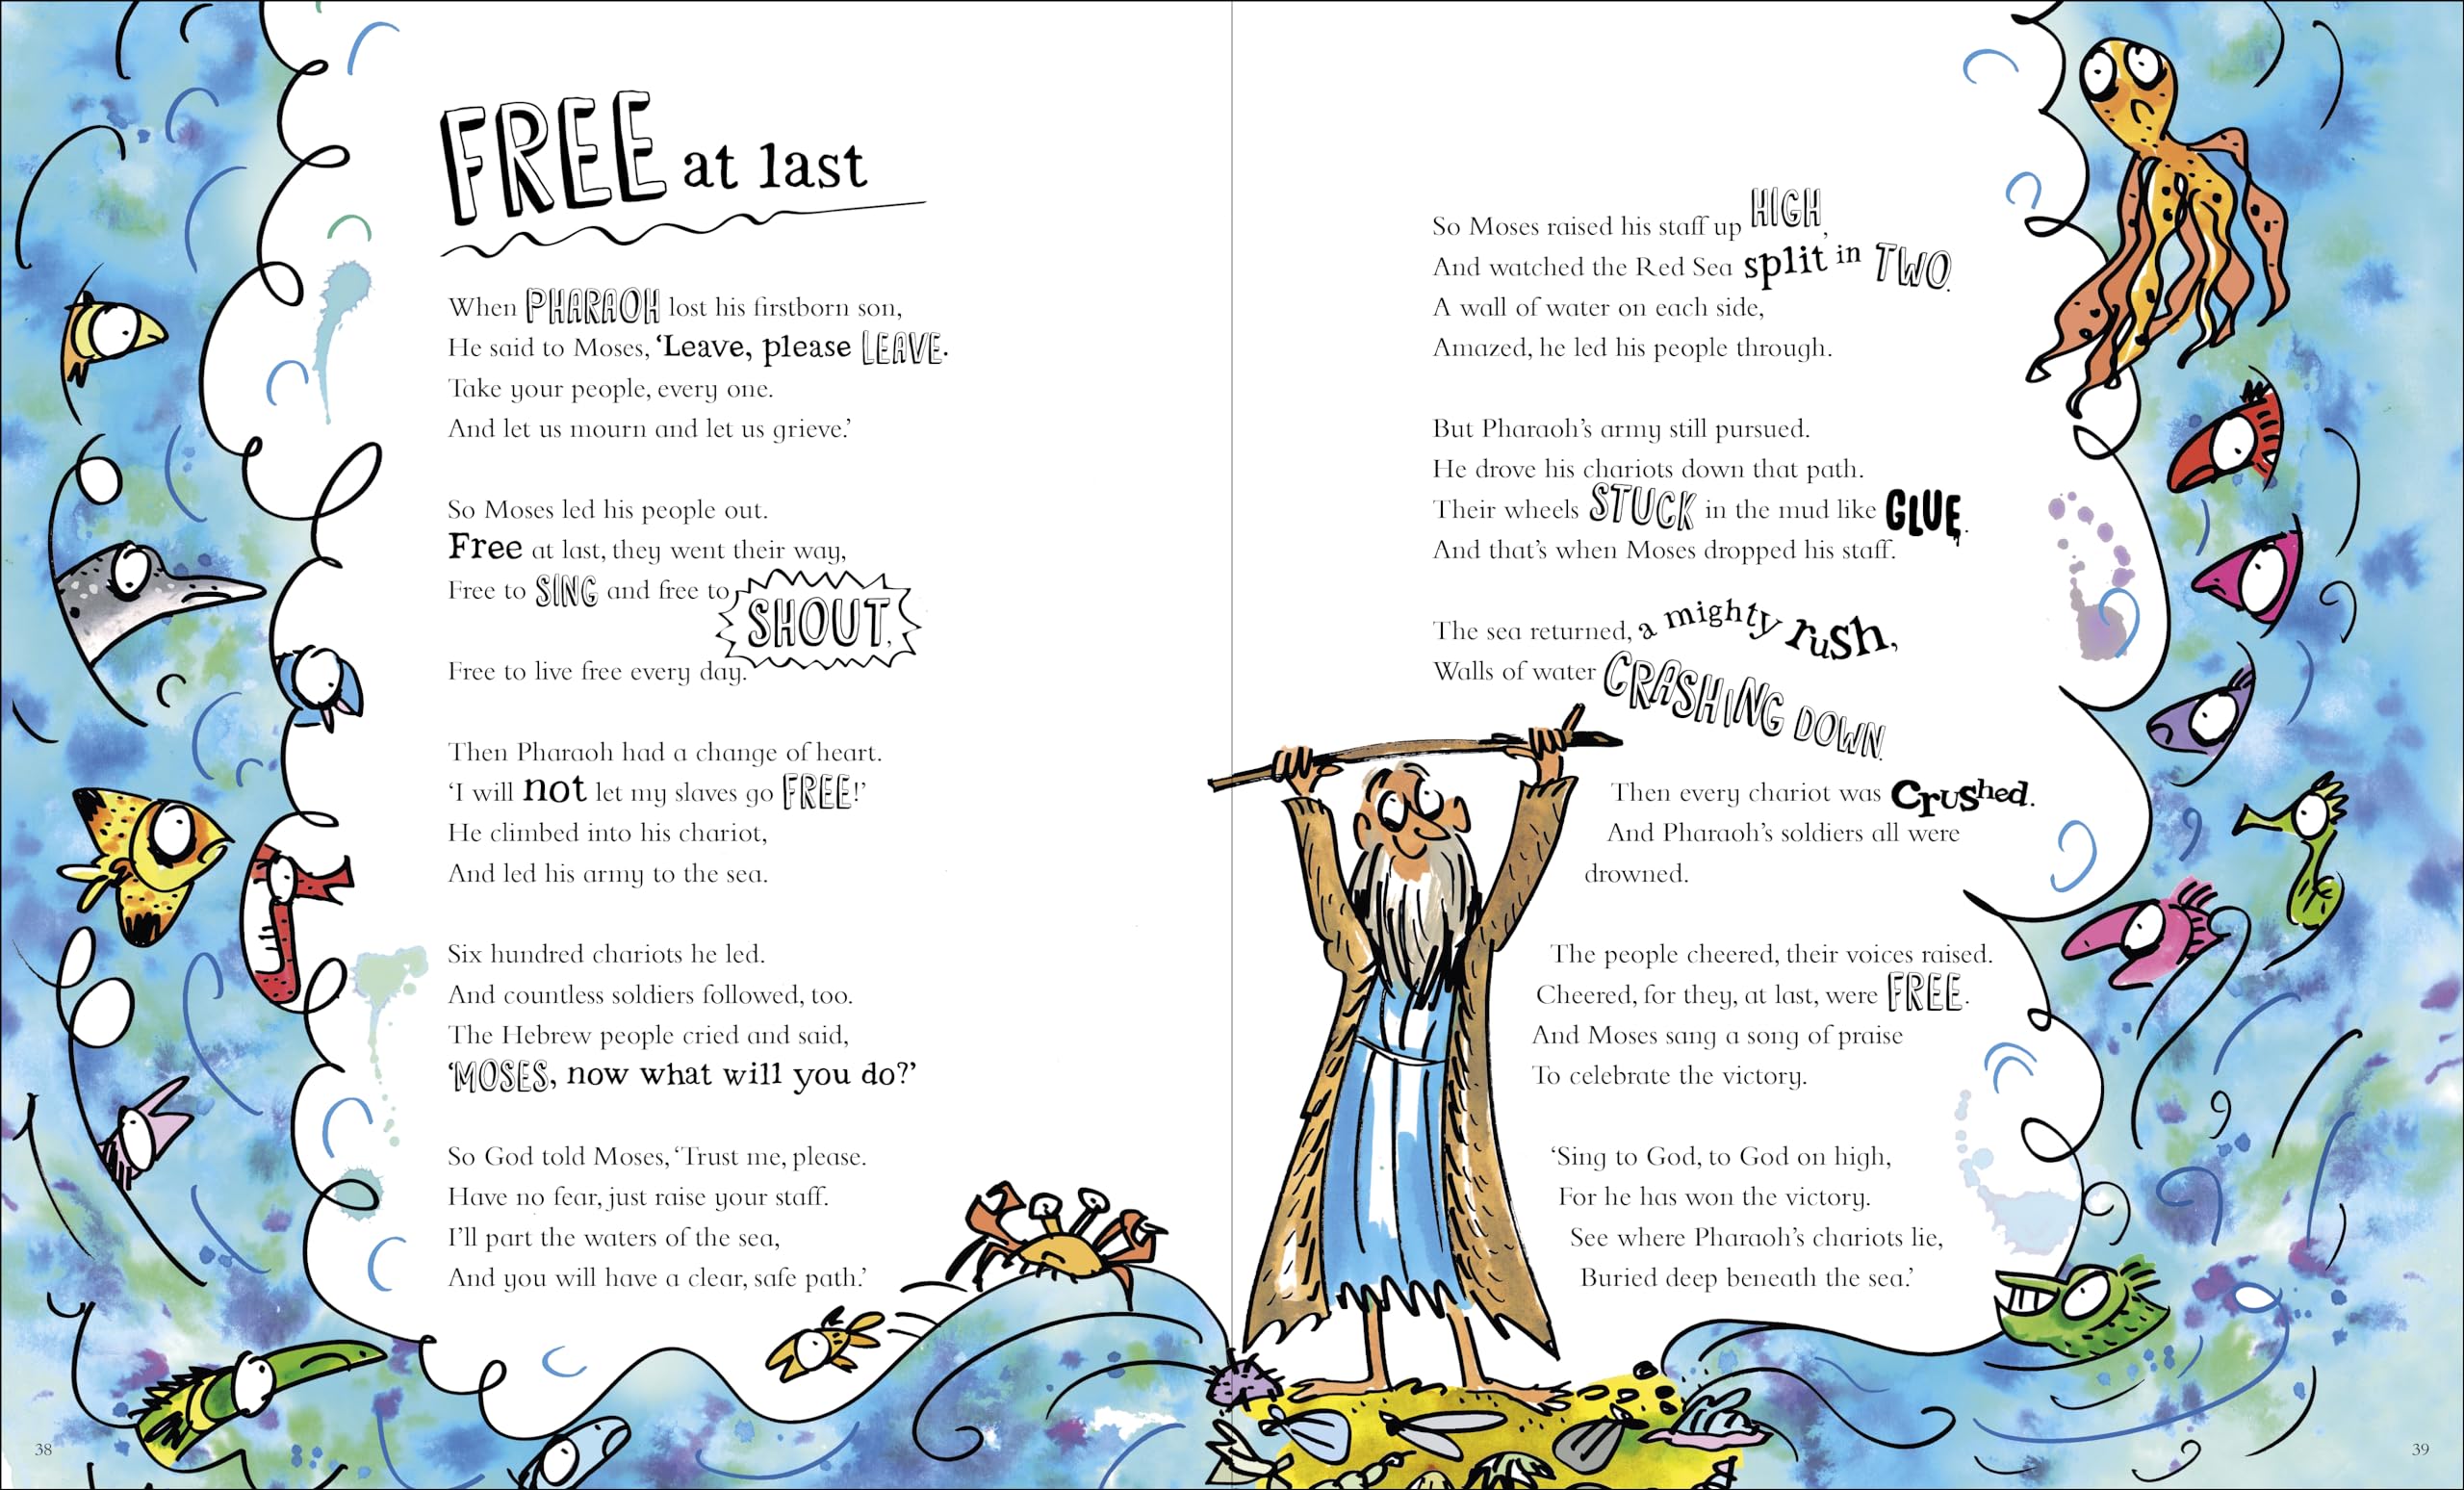 FREE at last
When PHARAOH lost his firstborn son,
He said to Moses, ‘Leave, please LEAVE.
Take your people, every one.
And let us mourn and let us grieve.’
So Moses led his people out.
Free at last, they went their way,
Free to SING and free to SHOUT,
Free to live free every day.
Then Pharaoh had a change of heart.
‘I will not let my slaves go FREE!’
He climbed into his chariot,
And led his army to the sea.
Six hundred chariots he led.
And countless soldiers followed, too.
The Hebrew people cried and said,
‘MOSES, now what will you do?’
So God told Moses, ‘Trust me, please.
Have no fear, just raise your staff.
I’ll part the waters of the sea,
And you will have a clear, safe path.’
38
So Moses raised his staff up HIGH,
And watched the Red Sea split in TWO.
A wall of water on each side,
Amazed, he led his people through.
But Pharaoh’s army still pursued.
He drove his chariots down that path.
Their wheels STUCK in the mud like GLUE.
And that’s when Moses dropped his staff.
The sea returned, a mighty rush,
Walls of water CRASHING DOWN.
Then every chariot was Crushed.
And Pharaoh’s soldiers all were
drowned.
The people cheered, their voices raised.
Cheered, for they, at last, were FREE.
And Moses sang a song of praise
To celebrate the victory.
‘Sing to God, to God on high,
For he has won the victory.
See where Pharaoh’s chariots lie,
Buried deep beneath the sea.’
39